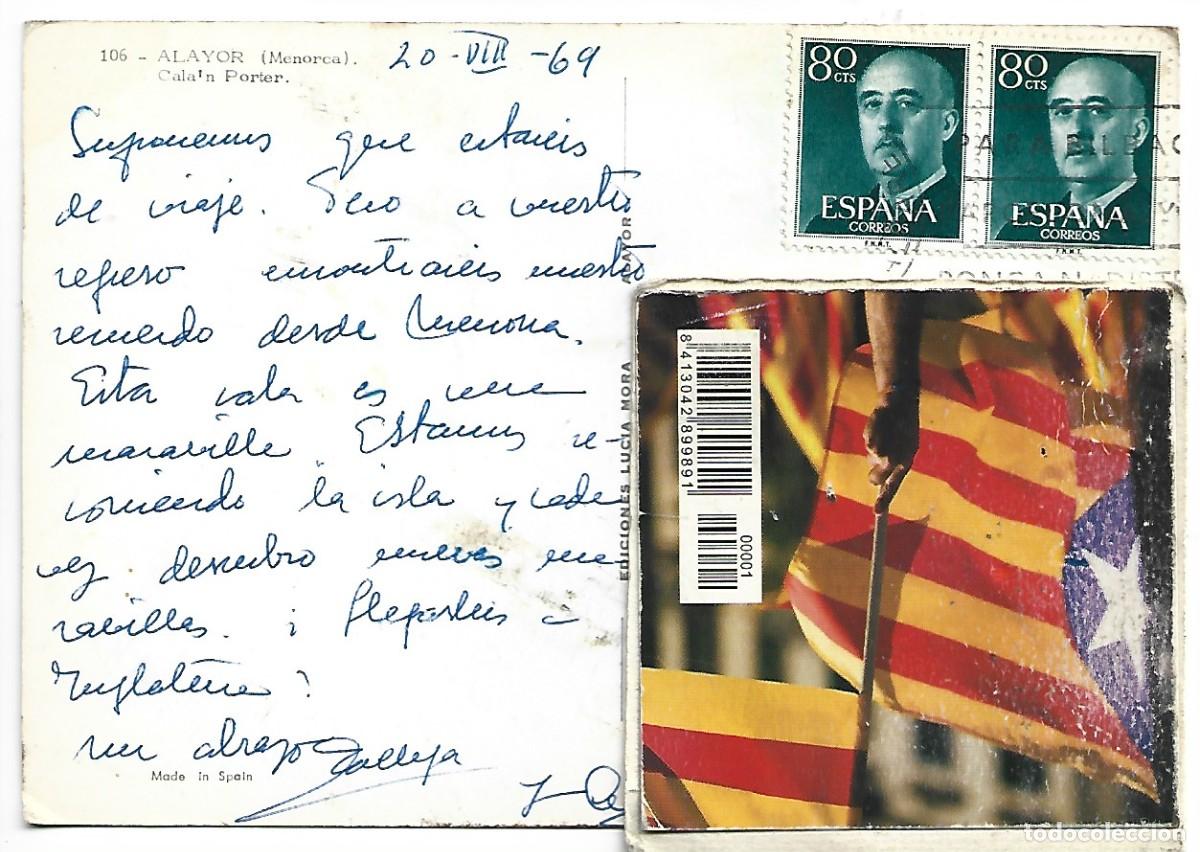 106 - ALAYOR (Menorca).
Cala'n Porter.
20-VIII-69
Suponemos que estareis
de viaje. Pero a vuestro
regreso encontrareis nuestro
recuerdo desde Menorca.
Esta cala es una
maravilla. Estamos re-
corriendo la isla y cada
vez descubro nuevas ma-
ravillas. ¿ Llegasteis a
Inglaterra?
un abrazo
Made in Spain
EDICIONES LUCIA MORA
ALAYOR
80 CTS
ESPAÑA
CORREOS
F.N.M.T.
80 CTS
ESPAÑA
CORREOS
F.N.M.T.
PARA BILBAO
PONGA
8 413042 899891
00001
todocoleccion